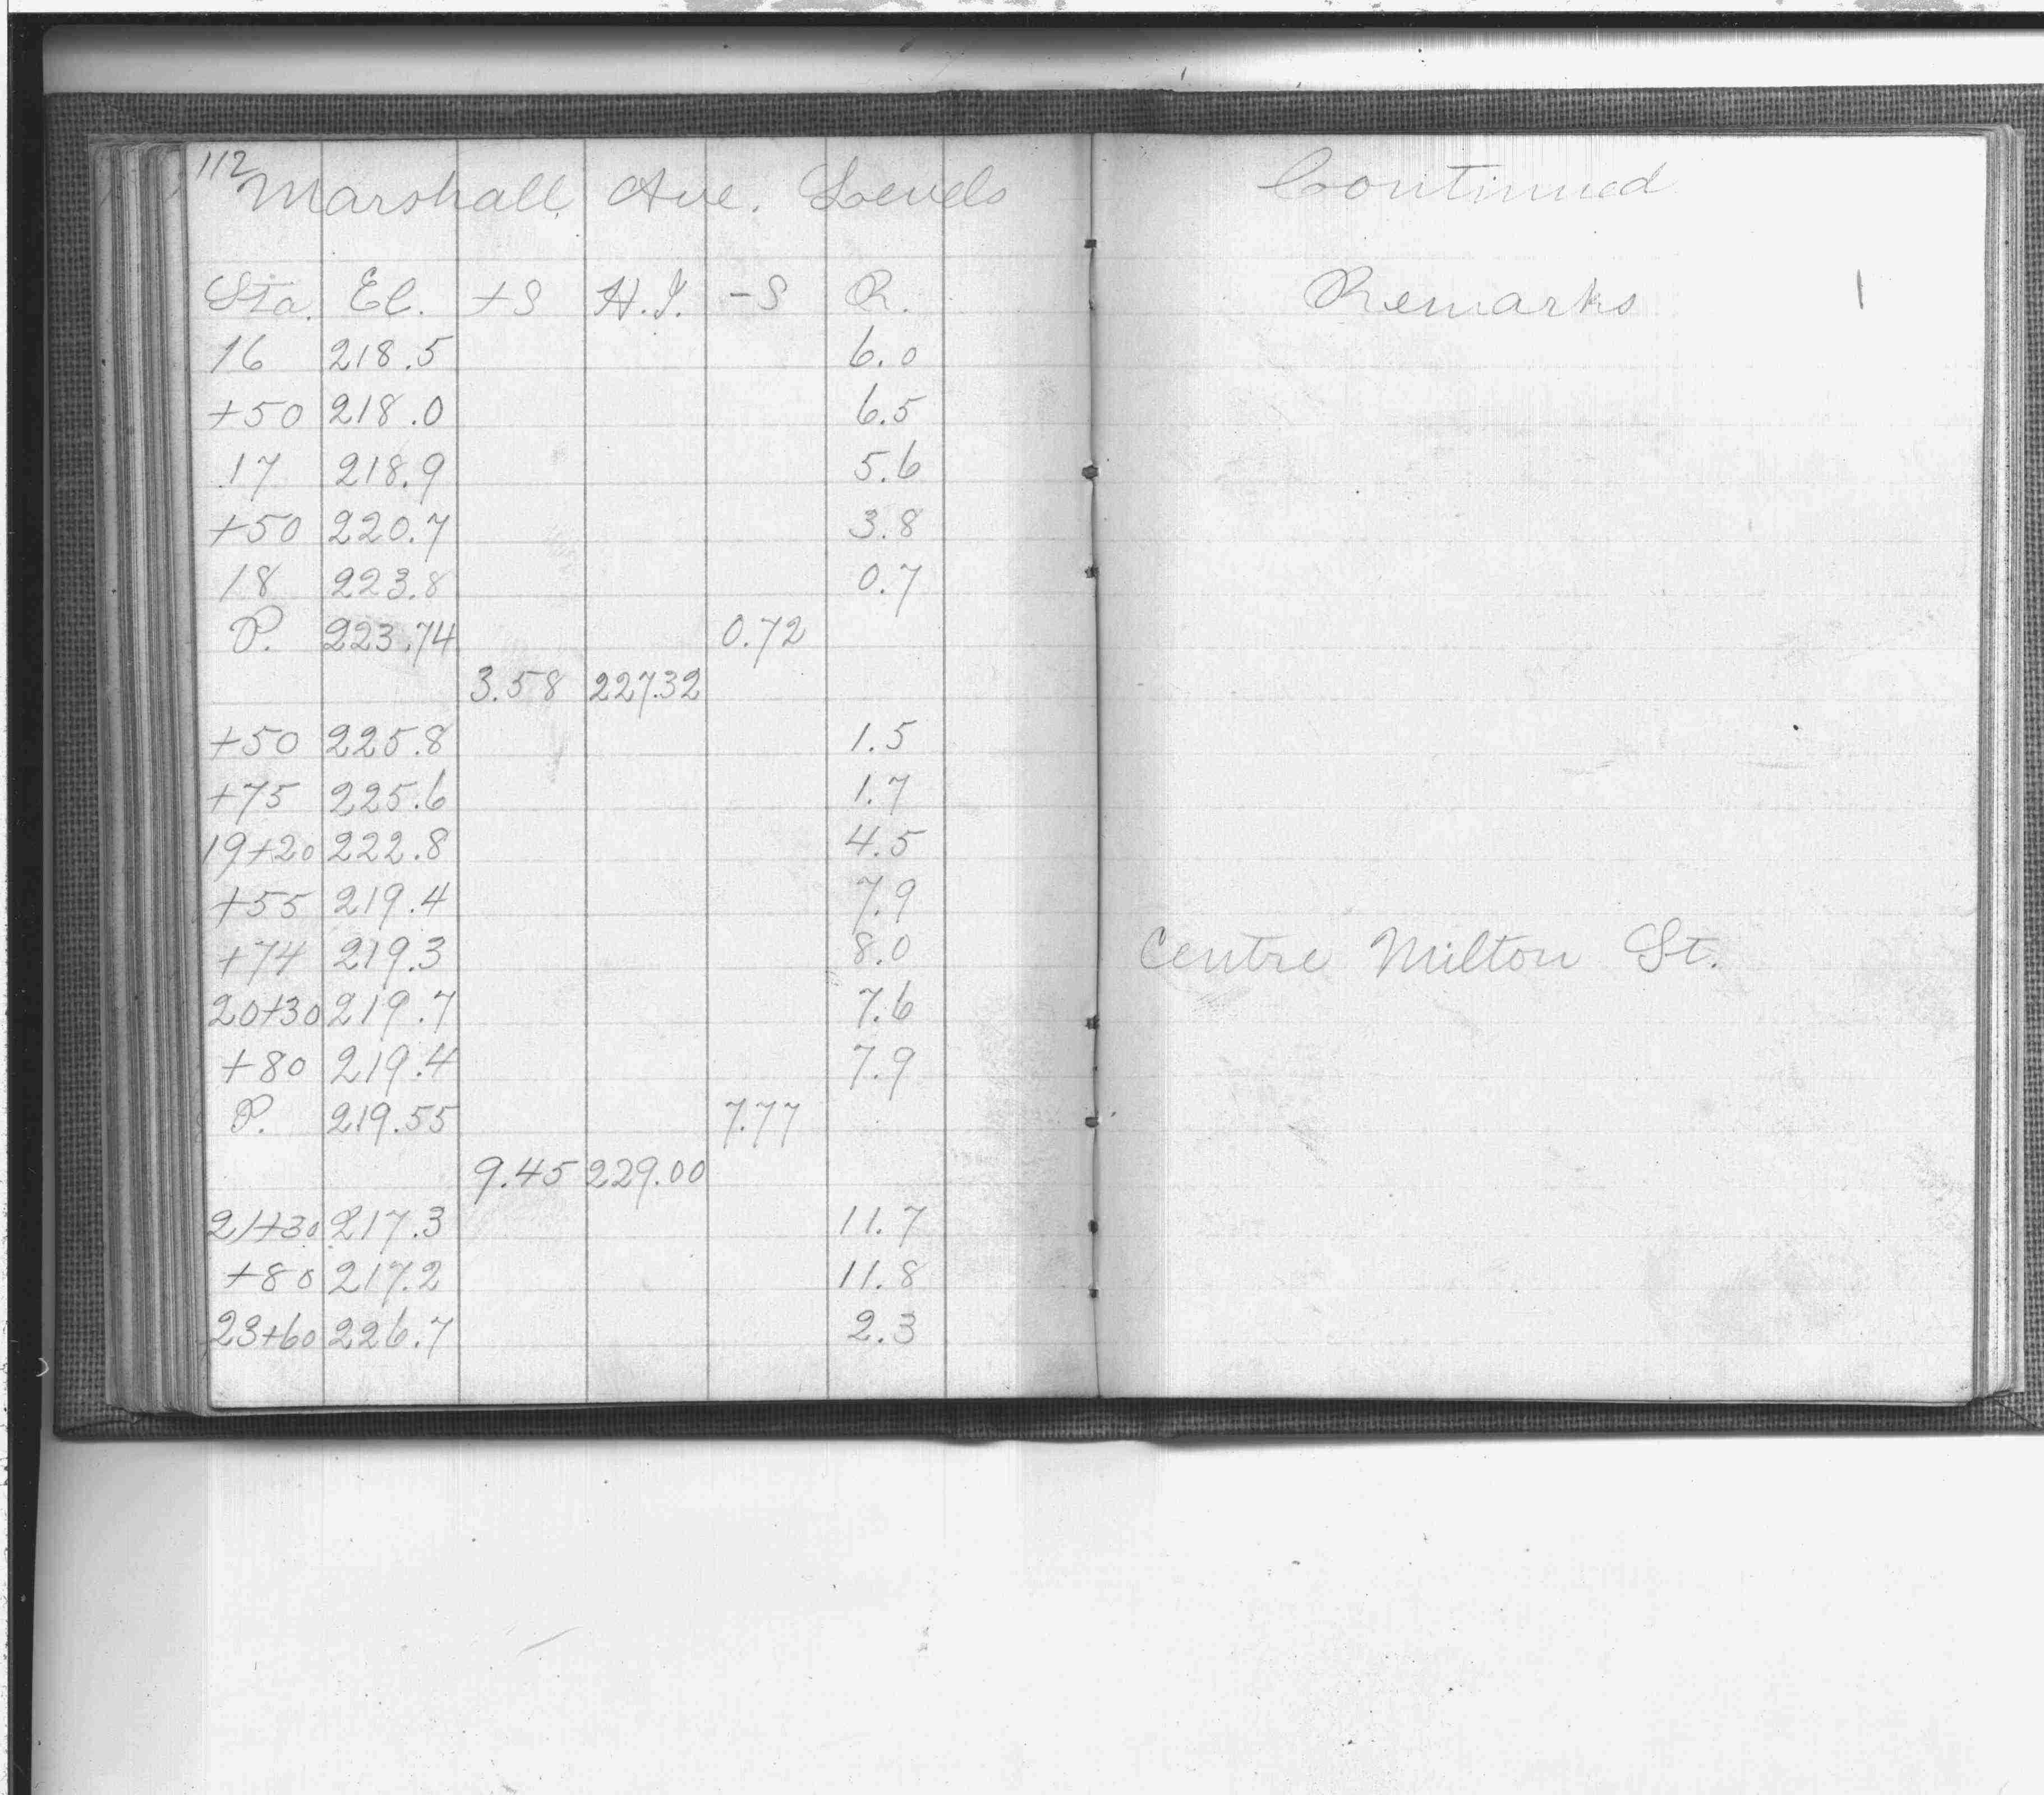 112
Marshall Ave. Levels Continued
Sta. El. +S H.I. -S R. Remarks
16 218.5 6.0
+50 218.0 6.5
17 218.9 5.6
+50 220.7 3.8
18 223.8 0.7
P. 223.74 0.72
3.58 227.32
+50 225.8 1.5
+75 225.6 1.7
19+20 222.8 4.5
+55 219.4 7.9
+74 219.3 8.0 Centre Milton St.
20+30 219.7 7.6
+80 219.4 7.9
P. 219.55 7.77
9.45 229.00
21+30 217.3 11.7
+80 217.2 11.8
23+60 226.7 2.3